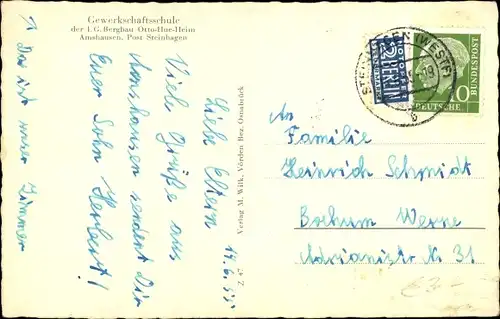 Gewerkschaftsschule
der I. G. Bergbau Otto-Hue-Heim
Amshausen, Post Steinhagen
17.6.55
Liebe Eltern
Viele Grüße aus
Amshausen sendet Dir
Euer Sohn Herbert!
↑ Das ist unser Zimmer
Verlag M. Wilk, Vörden Bez. Osnabrück
Z 47
NOTOPFER
2 BERLIN
STEUERMARKE
STEINHAGEN (WESTF)
b
10
DEUTSCHE
BUNDESPOST
An
Familie
Heinrich Schmidt
Bochum Werne
Adrianistr. Nr. 31
€3-